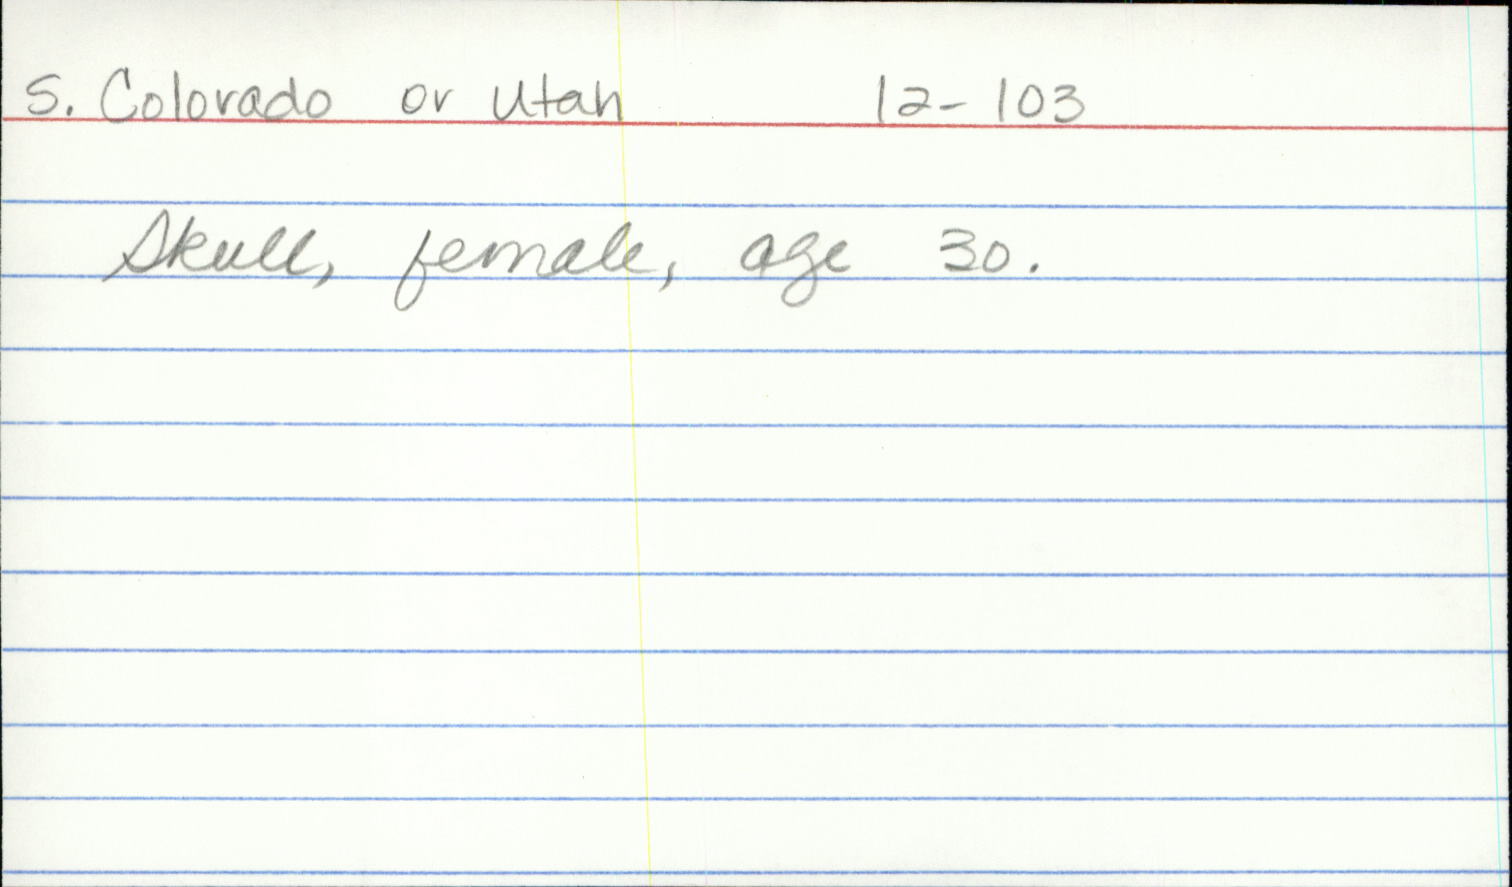 S. Colorado or Utah 12-103
Skull, female, age 30.